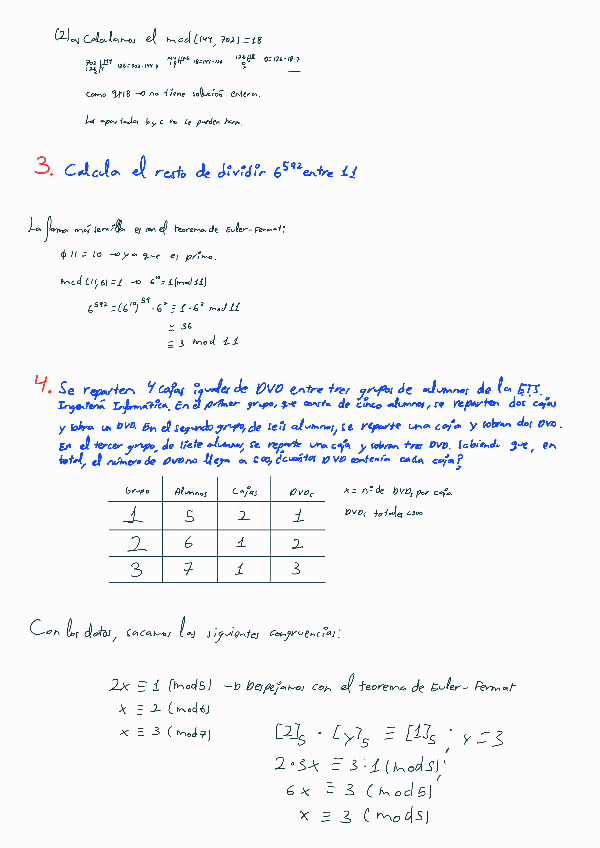 Calculamos el mcd(144, 702) = 18
126 = 702 - 144·4   18 = 144 - 126   0 = 126 - 18·7
Como 9∤18 → no tiene solución entera.
Los apartados b y c no se pueden hacer.
3. Calcula el resto de dividir 6^592 entre 11
La forma más sencilla es con el teorema de Euler-Fermat:
ϕ 11 = 10 → ya que es primo.
mcd(11,6) = 1 → 6^10 ≡ 1 (mod 11)
6^592 = (6^10)^59 · 6^2 ≡ 1 · 6^2 mod 11
≡ 36
≡ 3 mod 11
4. Se reparten 4 cajas iguales de DVD entre tres grupos de alumnos de la ETS.
Ingeniería Informática. En el primer grupo, que consta de cinco alumnos, se reparten dos cajas
y sobra un DVD. En el segundo grupo, de seis alumnos, se reparte una caja y sobran dos DVD.
En el tercer grupo, de siete alumnos, se reparte una caja y sobran tres DVD. Sabiendo que, en
total, el número de DVD no llega a 500, ¿cuántos DVD contenía cada caja?
Grupo Alumnos Cajas DVDs x = nº de DVDs por caja
1 5 2 1 DVDs totales <500
2 6 1 2
3 7 1 3
Con los datos, sacamos las siguientes congruencias:
2x ≡ 1 (mod 5) → Despejamos con el teorema de Euler-Fermat
x ≡ 2 (mod 6)
x ≡ 3 (mod 7)
[2]5 · [y]5 ≡ [1]5 ; y = 3
2·3x ≡ 3·1 (mod 5);
6x ≡ 3 (mod 5)
x ≡ 3 (mod 5)